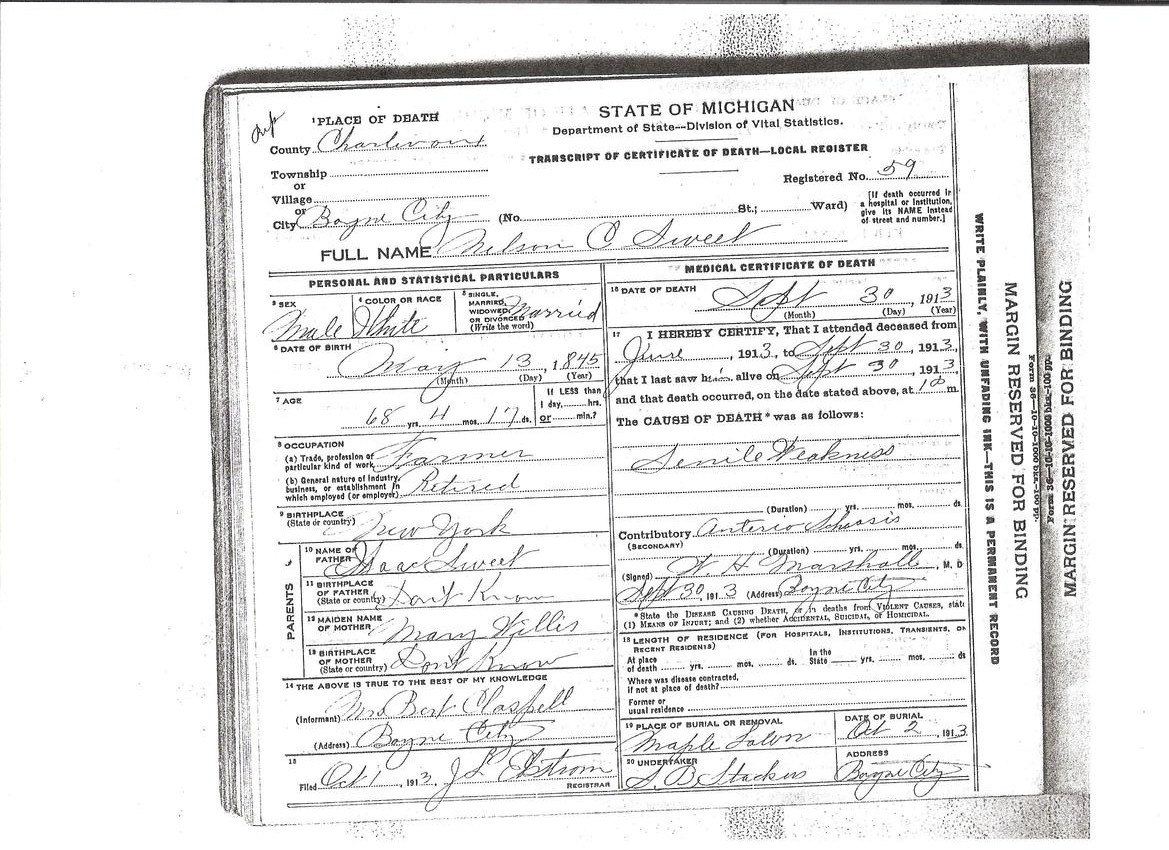 STATE OF MICHIGAN
Department of State—Division of Vital Statistics.
TRANSCRIPT OF CERTIFICATE OF DEATH—LOCAL REGISTER
1 PLACE OF DEATH
County Charlevoix
Township
or
Village
or
City Boyne City (No. St.; Ward)
Registered No. 59
[If death occurred in a hospital or institution, give its NAME instead of street and number.]
FULL NAME Nelson C Sweet
PERSONAL AND STATISTICAL PARTICULARS
3 SEX Male
4 COLOR OR RACE White
5 SINGLE, MARRIED, WIDOWED, OR DIVORCED (Write the word) Married
6 DATE OF BIRTH May 13, 1845
(Month) (Day) (Year)
7 AGE 68 yrs. 4 mos. 17 ds.
If LESS than 1 day, hrs. or min.?
8 OCCUPATION
(a) Trade, profession or particular kind of work Farmer
(b) General nature of industry, business, or establishment in which employed (or employer) Retired
9 BIRTHPLACE (State or country) New York
PARENTS
10 NAME OF FATHER Isaac Sweet
11 BIRTHPLACE OF FATHER (State or country) Dont Know
12 MAIDEN NAME OF MOTHER Mary Willis
13 BIRTHPLACE OF MOTHER (State or country) Dont Know
14 THE ABOVE IS TRUE TO THE BEST OF MY KNOWLEDGE
(Informant) Mrs Bert Claspell
(Address) Boyne City
15
Filed Oct 1, 1913. J L
REGISTRAR
MEDICAL CERTIFICATE OF DEATH
16 DATE OF DEATH Sept 30, 1913
(Month) (Day) (Year)
17 I HEREBY CERTIFY, That I attended deceased from
June, 1913, to Sept 30, 1913,
that I last saw him alive on Sept 30, 1913,
and that death occurred, on the date stated above, at m.
The CAUSE OF DEATH* was as follows:
Senile Weakness
(Duration) yrs. mos. ds.
Contributory
(SECONDARY)
(Duration) yrs. mos. ds.
(Signed) W H Marshall, M. D
Sept 30, 1913 (Address) Boyne City
*State the DISEASE CAUSING DEATH, or in deaths from VIOLENT CAUSES, state
(1) MEANS OF INJURY; and (2) whether ACCIDENTAL, SUICIDAL, or HOMICIDAL.
18 LENGTH OF RESIDENCE (FOR HOSPITALS, INSTITUTIONS, TRANSIENTS, OR
RECENT RESIDENTS)
At place of death yrs. mos. ds. In the State yrs. mos. ds
Where was disease contracted,
if not at place of death?
Former or
usual residence
19 PLACE OF BURIAL OR REMOVAL Maple Lawn
DATE OF BURIAL Oct 2, 1913
20 UNDERTAKER S. B. Stackus
ADDRESS Boyne City
WRITE PLAINLY, WITH UNFADING INK—THIS IS A PERMANENT RECORD
MARGIN RESERVED FOR BINDING
MARGIN RESERVED FOR BINDING